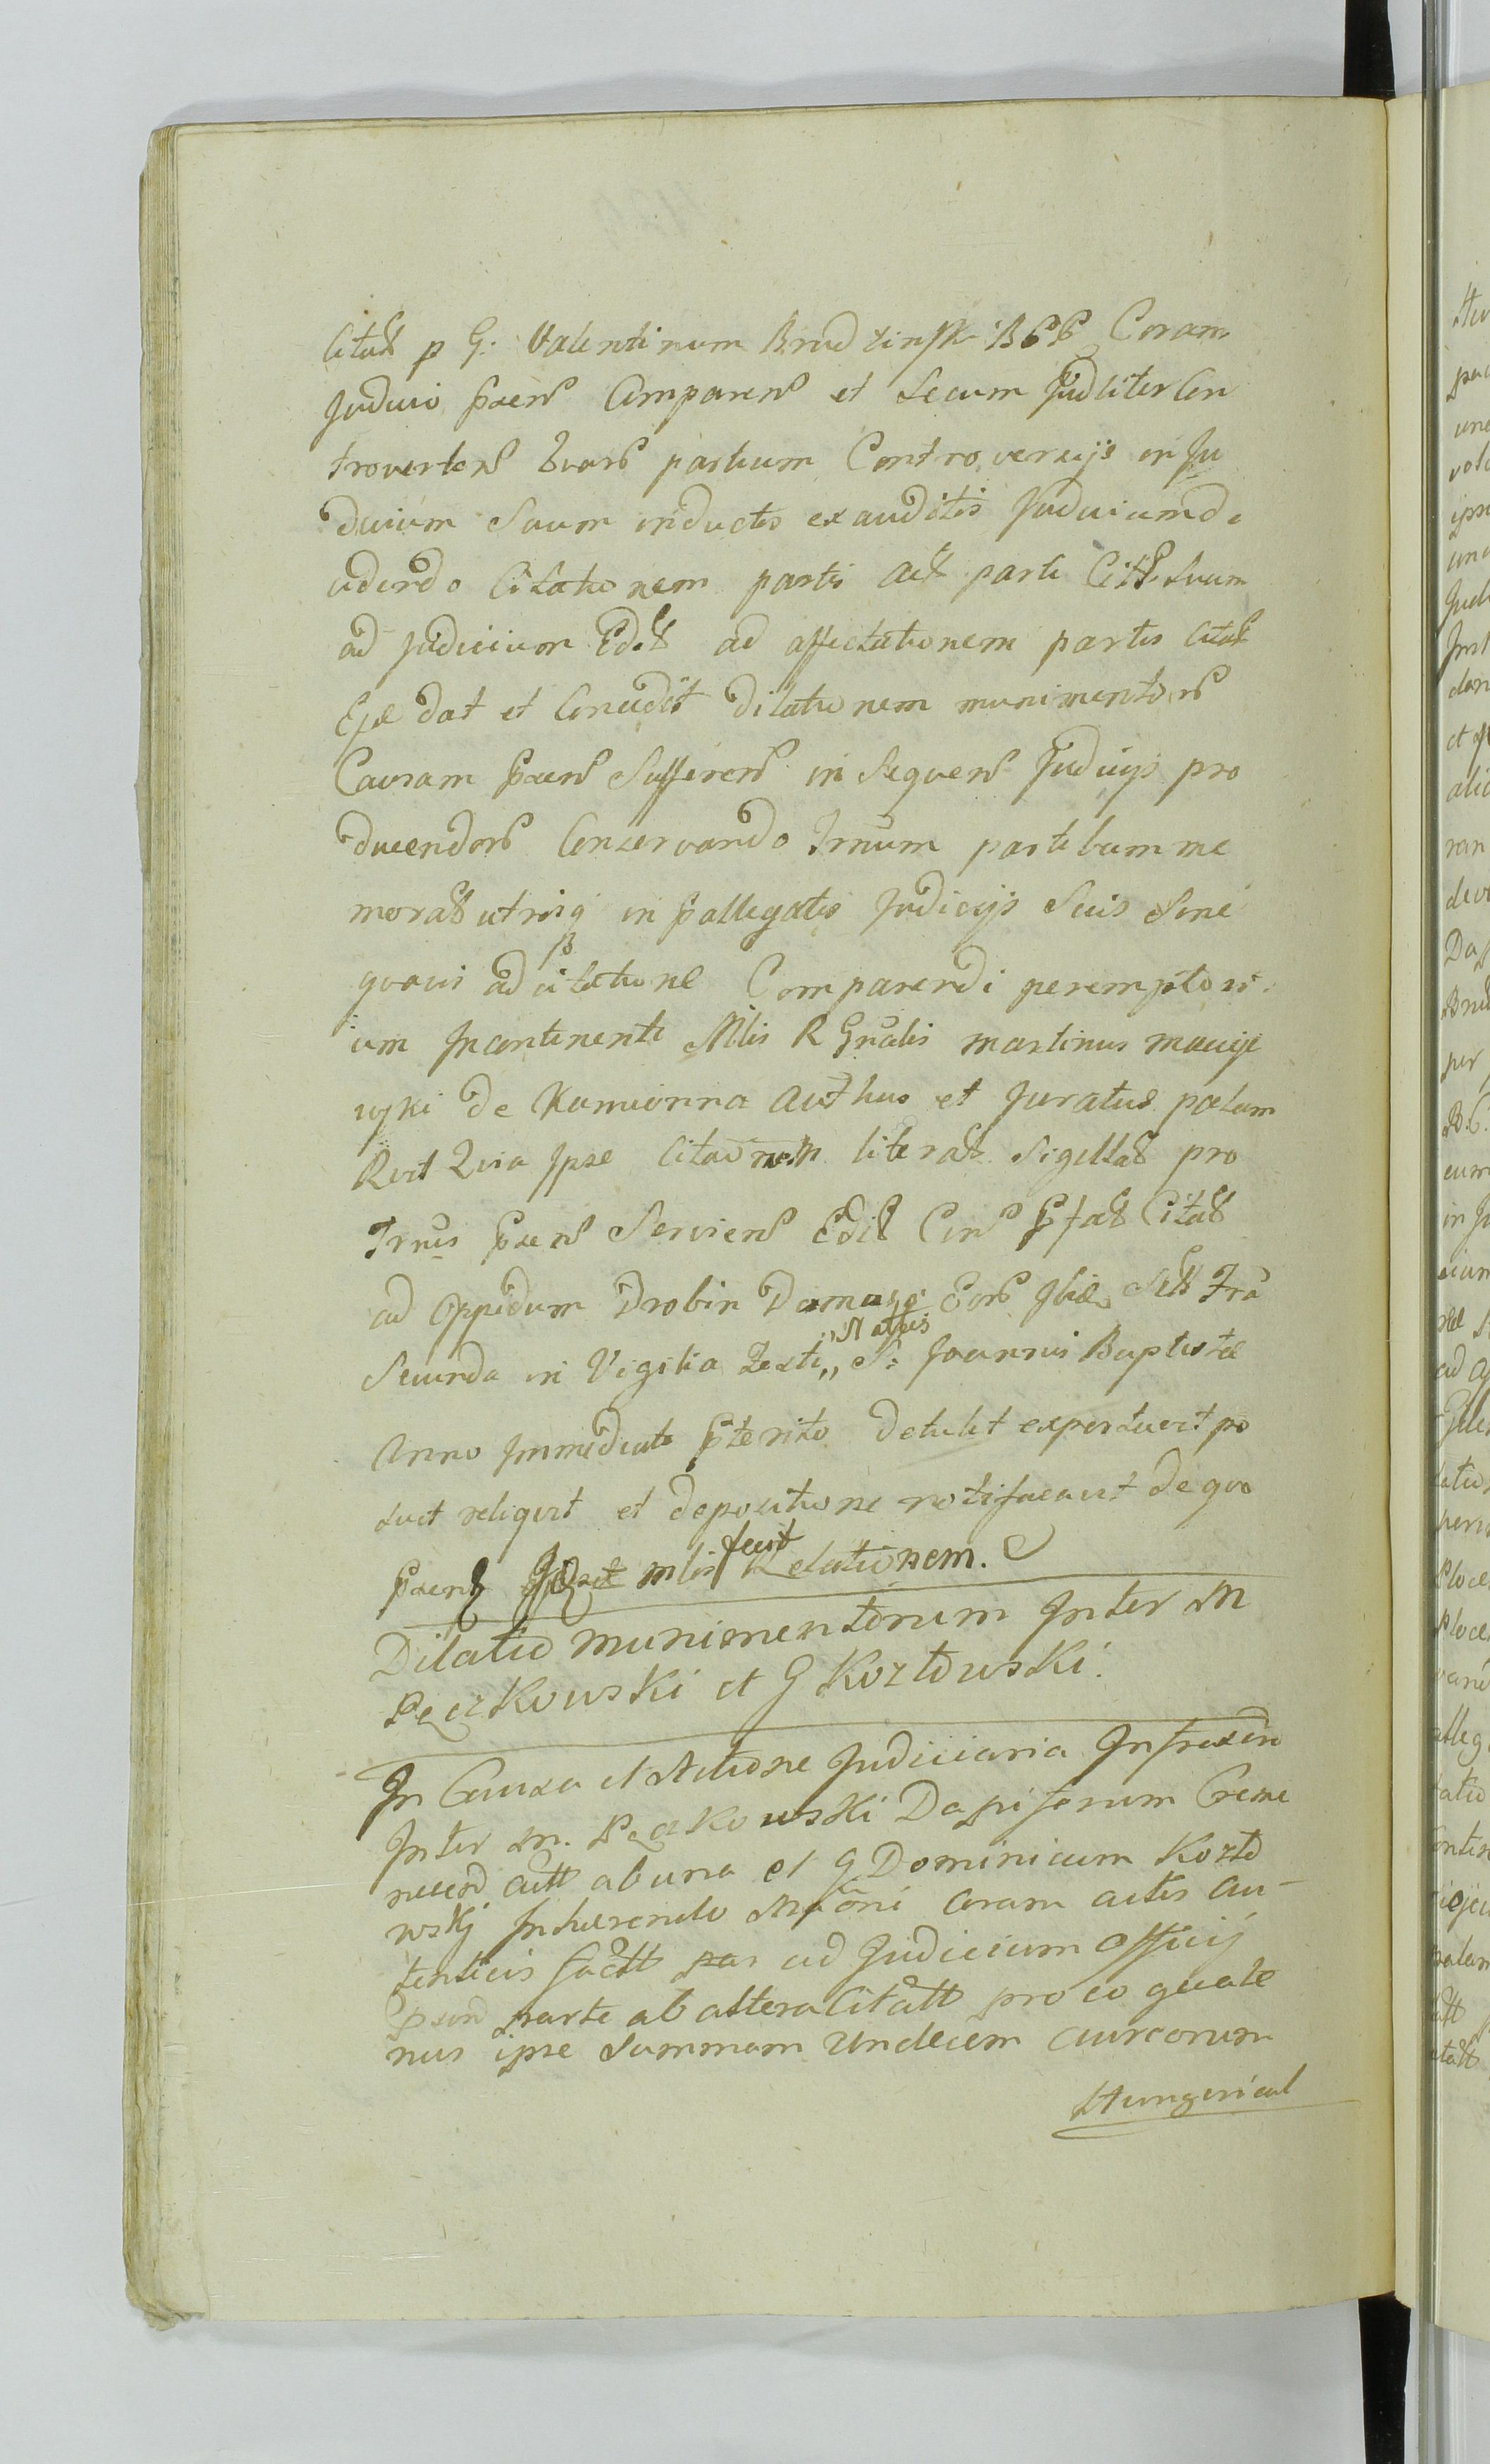 Citat p G: Valentinum Brudzinsk BCC Coram
Judicio praen Comparen et secum Judliter Con
troverten Quar partium Controversijs in Ju
dicium Suum inductis exauditis Judicium de
cidendo Citationem partis act parti Citt Suum
ad Judicium Edit ad affectationem partis Citat
Ejae dat et Concedit Dilationem munimentor
Causam praen Sufferen in Sequen Judicijs pro
ducendor Conservando Trnum partibus me
morat utrisq in pallegatis Judicijs Suis Sine
quavis adcitatione Comparendi peremptori
um Incontinenti Mlis R Gnalis Martinus Maciej
wski de Kamionna Authus et Juratus palam
Rcit Quia Ipse Citaonem literat Sigillat pro
Trnis praen Servien Edit Citat
ad Oppidum Drobin Fra
Secunda in Vigilia Festi „Natlis„ S: Joannis Baptistae
Anno Immediate pterito Detulit exportavit po
suit reliquit et depositione notificavit de quo
praens mlis fecit Relationem.
Dilatio munimentorum Inter M
Pęczkowski et G Kozłowski.
In Causa et Actione Judiciaria Infrascrip
Inter M. Pęczkowski Dapiferum Creme
necen actt ab una et G Dominicum Kozło
wskj Inhaerendo coram actis au-
tenticis factt ad Judicium Officij
parte ab altera Citatt pro eo quate
nus ipse Summam Undecim aureorum
Hungarical